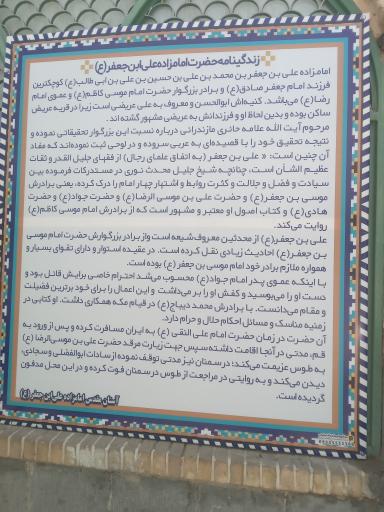 زندگینامه حضرت امامزاده علی ابن جعفر(ع)
امامزاده علی بن جعفر بن محمد بن علی بن حسین بن علی بن ابی طالب(ع) کوچکترین
فرزند امام جعفر صادق(ع) و برادر بزرگوار حضرت امام موسی کاظم(ع) و عموی امام
رضا(ع) می‌باشد. کنیه‌اش ابوالحسن و معروف به علی عریضی است زیرا در قریه عریض
ساکن بوده و بدین لحاظ او و فرزندانش به عریضی مشهور گشته اند.
مرحوم آیت الله علامه حائری مازندرانی درباره نسبت این بزرگوار تحقیقاتی نموده و
نتیجه تحقیق خود را با قصیده‌ای به عربی سروده و در لوحی ثبت نموده‌اند که مفاد
آن چنین است: « علی بن جعفر (به اتفاق علمای رجال) از فقهای جلیل القدر و ثقات
عظیم الشأن است، چنانچه شیخ جلیل محدث نوری در مستدرکات فرموده بین
سیادت و فضل و جلالت و کثرت روابط و اشتهار چهار امام را درک کرده، یعنی برادرش
موسی بن جعفر(ع) و حضرت علی بن موسی الرضا(ع) و حضرت جواد(ع) و حضرت
هادی(ع) و کتاب اصول او معتبر و مشهور است که از برادرش امام موسی کاظم(ع)
روایت می‌کند.
علی بن جعفر(ع) از محدثین معروف شیعه است و از برادر بزرگوارش حضرت امام موسی
بن جعفر(ع) احادیث زیادی نقل کرده است. در عقیده استوار و دارای تقوای بسیار و
همواره ملازم برادر خود امام موسی بن جعفر (ع) بوده است.
با اینکه عموی پدر امام جواد(ع) محسوب می‌شد احترام خاصی برایش قائل بود و
دست او را می‌بوسید و کفش او را بر می‌داشت و این اعمال را برای خود برترین فضیلت
و مقام می‌دانست. با برادرش محمد دیباج(ع) در قیام مکه همکاری داشت. او کتابی در
زمینه مناسک و مسائل احکام حلال و حرام دارد.
آن حضرت در زمان حضرت امام علی النقی (ع) به ایران مسافرت کرده و پس از ورود به
قم، مدتی در آنجا اقامت داشته سپس جهت زیارت مرقد حضرت علی بن موسی الرضا (ع)
به طوس عزیمت می‌کند؛ در سمنان نیز مدتی توقف نموده از سادات ابوالفضلی و سجادی،
دیدن می‌کند و به روایتی در مراجعت از طوس در سمنان فوت کرده و در این محل مدفون
گردیده است.
آستان مقدس امامزاده علی ابن جعفر (ع)